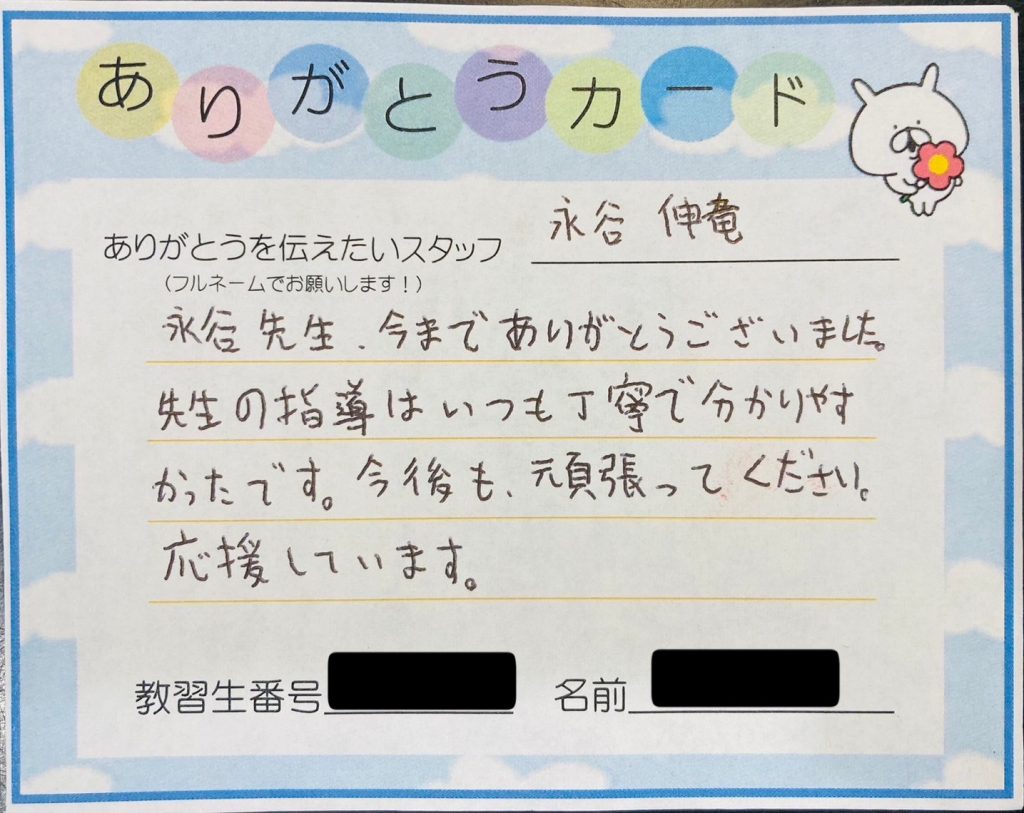 ありがとうカード
ありがとうを伝えたいスタッフ 永谷 伸竜
(フルネームでお願いします!)
永谷先生、今まであありがとうございました。
先生の指導はいつも丁寧で分かりやす
かったです。今後も、頑張ってください。
応援しています。
教習生番号
名前